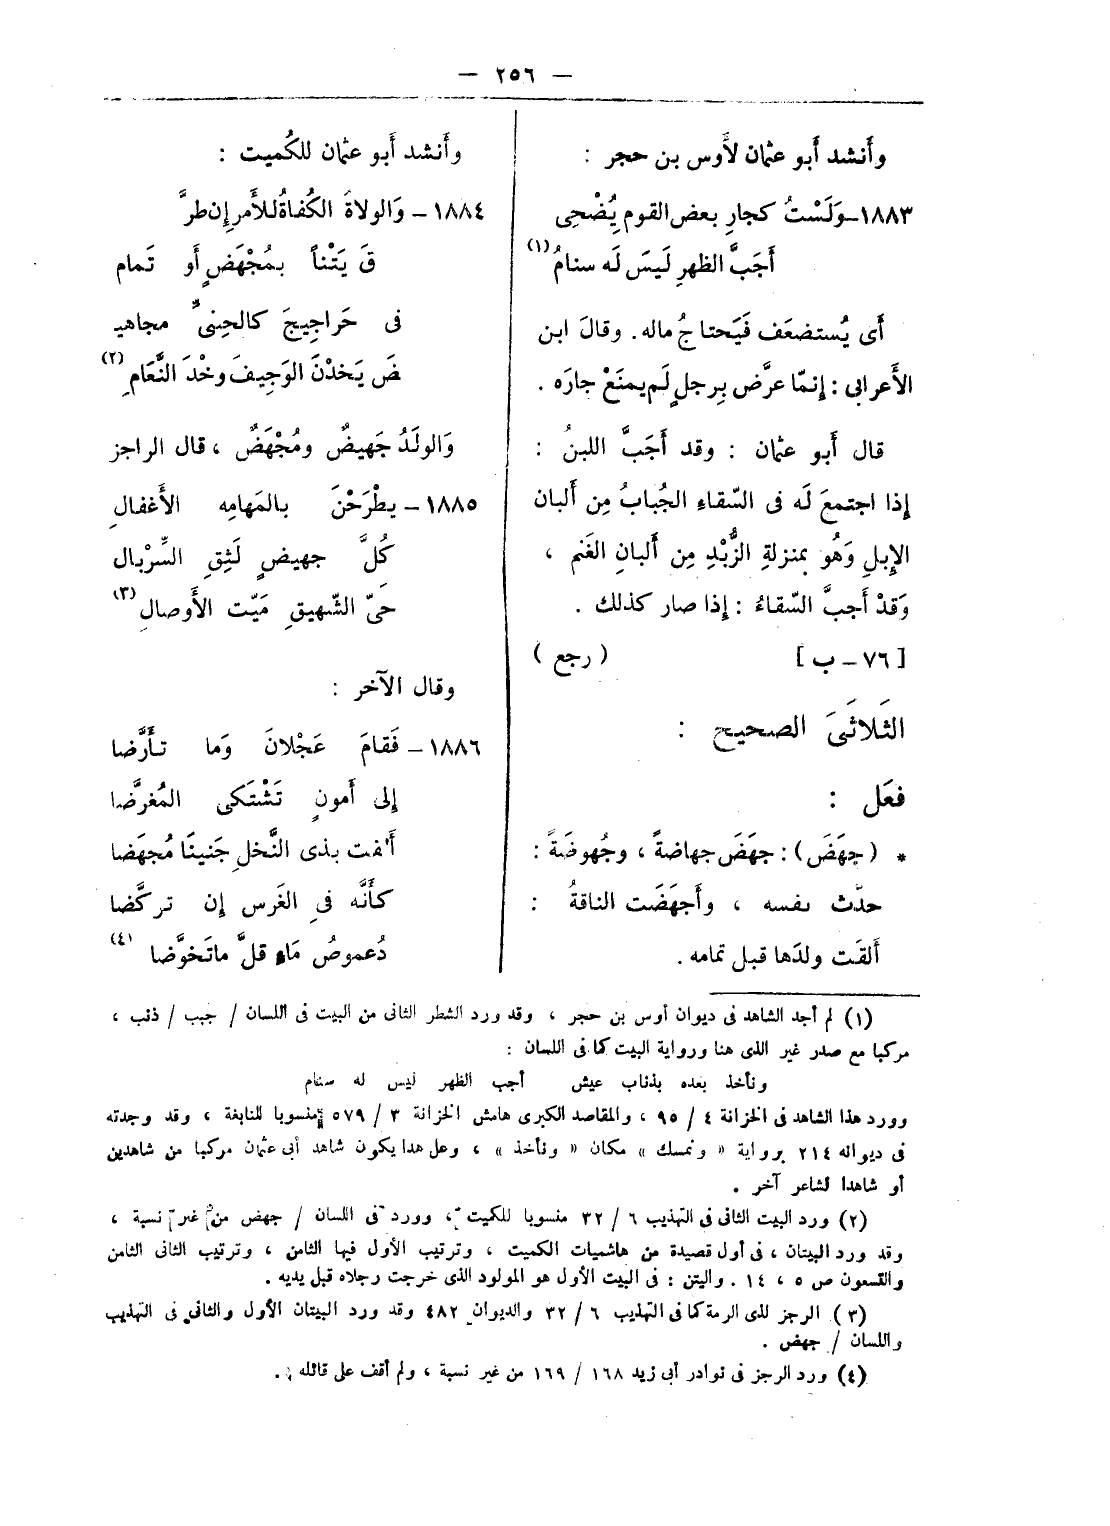 — ٢٥٦ —
وأَنشد أَبو عثمان لأَوس بن حجر :
١٨٨٣ـ وَلَسْتُ كجارِ بعض القوم يُضْحِى
أَجَبَّ الظهرِ لَيسَ لَه سنامُ (١)
أَى يُستضعَف فَيَحتاجُ ماله. وقالَ ابن
الأَعرابى : إِنمّا عرَّض بِرجلٍ لَم يمنَعْ جارَه .
قال أَبو عثمان : وقد أَجَبَّ اللبنُ :
إِذا اجتمعَ لَه فى السّقاءِ الجُبابُ مِن أَلبان
الإِبلِ وَهُو بمنزلةِ الزُّبْدِ مِن أَلبانِ الغَنم ،
وَقدْ أَجبَّ السّقاءُ : إِذا صار كذلك .
[ ٧٦ ـ ب ] ( رجع )
الثَلاثَىَ الصحيح :
فعَل :
* ( جهَضَ ) : جهَضَ جهاضةً ، وجُهوضَةً :
حدّث نفسه ، وأَجهَضَت الناقةُ :
أَلقَت ولدَها قبل تمامه .
وأَنشد أَبو عثمان للكُميت :
١٨٨٤ ـ وَالولاةُ الكُفاةُ للأَمر إِن طرَّ
قَ يَتْناً بمُجْهَضٍ أَو تَمام
فى حَراجِيجَ كالحِنىِّ مجاهيـ
ضَ يَخدْنَ الوَجِيفَ وخْدَ النَّعَامِ (٢)
وَالولَدُ جَهيضٌ ومُجْهَضٌ ، قال الراجز
١٨٨٥ ـ يطْرَحْنَ بالمَهامِه الأَغفالِ
كُلَّ جهيضٍ لَثِقِ السِّرْبال
حَىّ الشّهيقِ مَيّت الأَوصالِ (٣)
وقال الآخر :
١٨٨٦ ـ فَقامَ عَجْلانَ وَما تأَرَّضا
إِلى أَمونٍ تَشْتَكى المُغرَّضا
أَلقت بذى النَّخلِ جَنينًا مُجهَضا
كأَنَّه فى الغَرس إِن تركَّضا
دُعموصُ مَاء قلَّ ماتَخوَّضا (٤)
(١) لم أجد الشاهد فى ديوان أوس بن حجر ، وقد ورد الشطر الثانى من البيت فى اللسان / جبب / ذنب ،
مركبا مع صدر غير الذى هنا ورواية البيت كما فى اللسان :
ونأخذ بعده بذناب عيش أجب الظهر ليس له سنام
وورد هذا الشاهد فى الخزانة ٤ / ٩٥ ، والمقاصد الكبرى هامش الخزانة ٣ / ٥٧٩ منسوبا للنابغة ، وقد وجدته
فى ديوانه ٢١٤ برواية « ونمسك » مكان « ونأخذ » ، وعل هذا يكون شاهد أبى عثمان مركبا من شاهدين
أو شاهدا لشاعر آخر .
(٢) ورد البيت الثانى فى التهذيب ٦ / ٣٢ منسوبا للكميت ، وورد فى اللسان / جهض من غير نسبة ،
وقد ورد البيتان ، فى أول قصيدة من هاشميات الكميت ، وترتيب الأول فيها الثامن ، وترتيب الثانى الثامن
والتسعون ص ٥ ، ١٤ . واليتن : فى البيت الأول هو المولود الذى خرجت رجلاه قبل يديه .
( ٣ ) الرجز لذى الرمة كما فى التهذيب ٦ / ٣٢ والديوان ٤٨٢ وقد ورد البيتان الأول والثانى فى التهذيب
واللسان / جهض .
(٤) ورد الرجز فى نوادر أبى زيد ١٦٨ / ١٦٩ من غير نسبة ، ولم أقف على قائله .